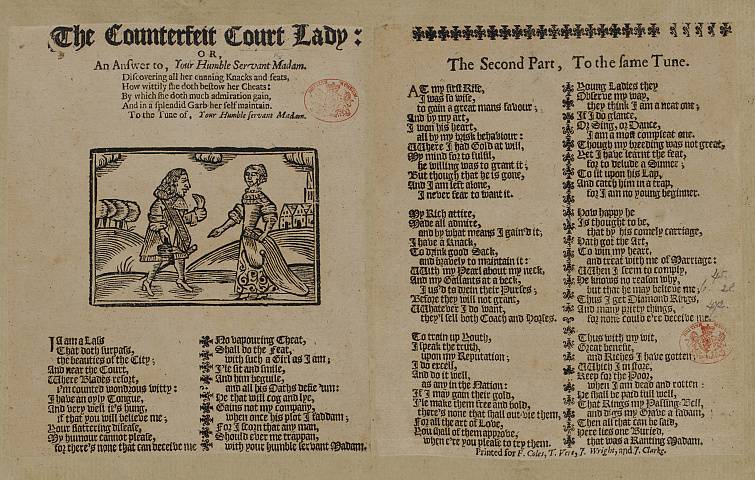 The Counterfeit Court Lady:
OR,
An Answer to, Your Humble Servant Madam.
Discovering all her cunning Knacks and feats,
How wittily she doth bestow her Cheats:
By which she doth much admiration gain,
And in a splendid Garb her self maintain.
To the Tune of, Your Humble servant Madam.
I am a Lass
That doth surpass,
the beauties of the City;
And near the Court,
Where Blades resort,
I'm counted wondrous witty:
I have an oyly Tongue,
And very well it's hung,
if that you will believe me;
Your flattering disease,
My humour cannot please,
for there's none that can deceive me
No vapouring Cheat,
Shall do the Feat,
with such a Girl as I am;
I'le sit and smile,
And him beguile,
and all his Oaths defie 'um:
He that will cog and lye,
Gains not my company,
when once his plot I saddam;
For I scorn that any man,
Should ever me trappan,
with your humble servant Madam.
The Second Part, To the same Tune.
AT my first Rise,
I was so wise,
to gain a great mans favour;
And by my art,
I won his heart,
all by my brisk behaviour:
Where I had Gold at will,
My mind for to fulfil,
he willing was to grant it;
But though that he is gone,
And I am left alone,
I never fear to want it.
My Rich attire,
Made all admire,
and by what means I gain'd it;
I have a Knack,
To drink good Sack,
and bravely to maintain it:
With my Pearl about my neck,
And my Gallants at a beck,
I us'd to drein their Purses;
Before they will not grant,
Whatever I do want,
they'l sell both Coach and Horses.
To train up Youth,
I speak the truth,
upon my Reputation;
I do excell,
And do it well,
as any in the Nation:
If I may gain their gold,
I'le make them free and bold,
there's none that shall out-vie them,
For all the art of Love,
You shall of them approve,
when e're you please to try them.
Young Ladies they
Observe my way,
they think I am a neat one;
If I do glance,
Or Sing, or Dance,
I am a most compleat one.
Though my breeding was not great,
Yet I have learnt the feat,
for to delude a Sinner;
To sit upon his Lap,
And catch him in a trap,
for I am no young beginner.
How happy he
Is thought to be,
that by his comely carriage,
Hath got the Art,
To win my heart,
and treat with me of Marriage:
When I seem to comply,
He knows no reason why,
but that he may believe me;
Thus I get Diamond Rings,
And many pretty things,
for none could e're deceive me.
Thus with my wit,
Great benefit,
and Riches I have gotten;
Which I in store,
Keep for the Poor,
when I am dead and rotten:
He shall be paid full well,
That Rings my Passing-Bell,
and digs my Grave a sadam,
Then all that can be said,
Here lies one Buried,
that was a Ranting Madam.
Printed for F. Coles, T. Vere, J. Wright, and J. Clarke.